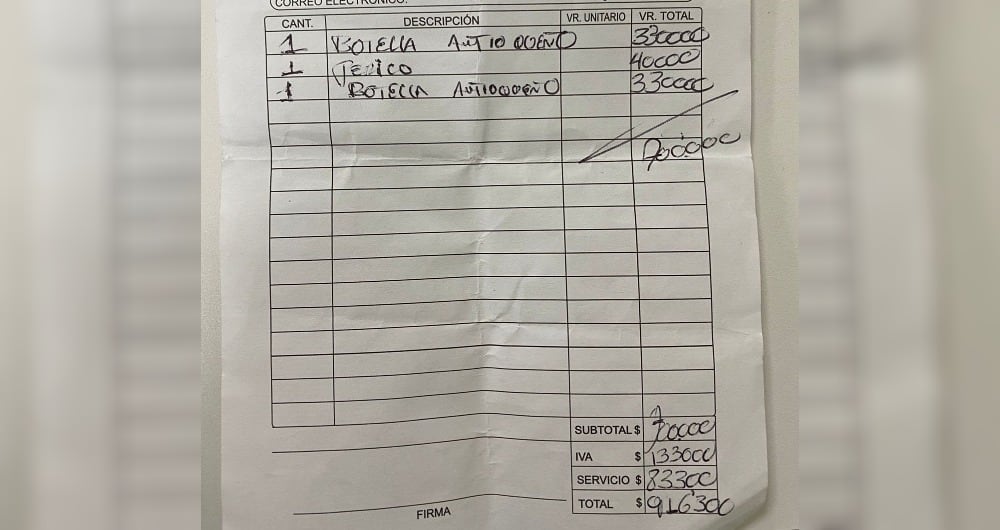 CORREO ELECTRÓNICO:
CANT. DESCRIPCIÓN VR. UNITARIO VR. TOTAL
1 BOTELLA ANTIOQUEÑO 330000
1 40000
1 BOTELLA ANTIOQUEÑO 330000
700000
SUBTOTAL $ 700000
IVA $ 133000
SERVICIO $ 83300
TOTAL $ 916300
FIRMA